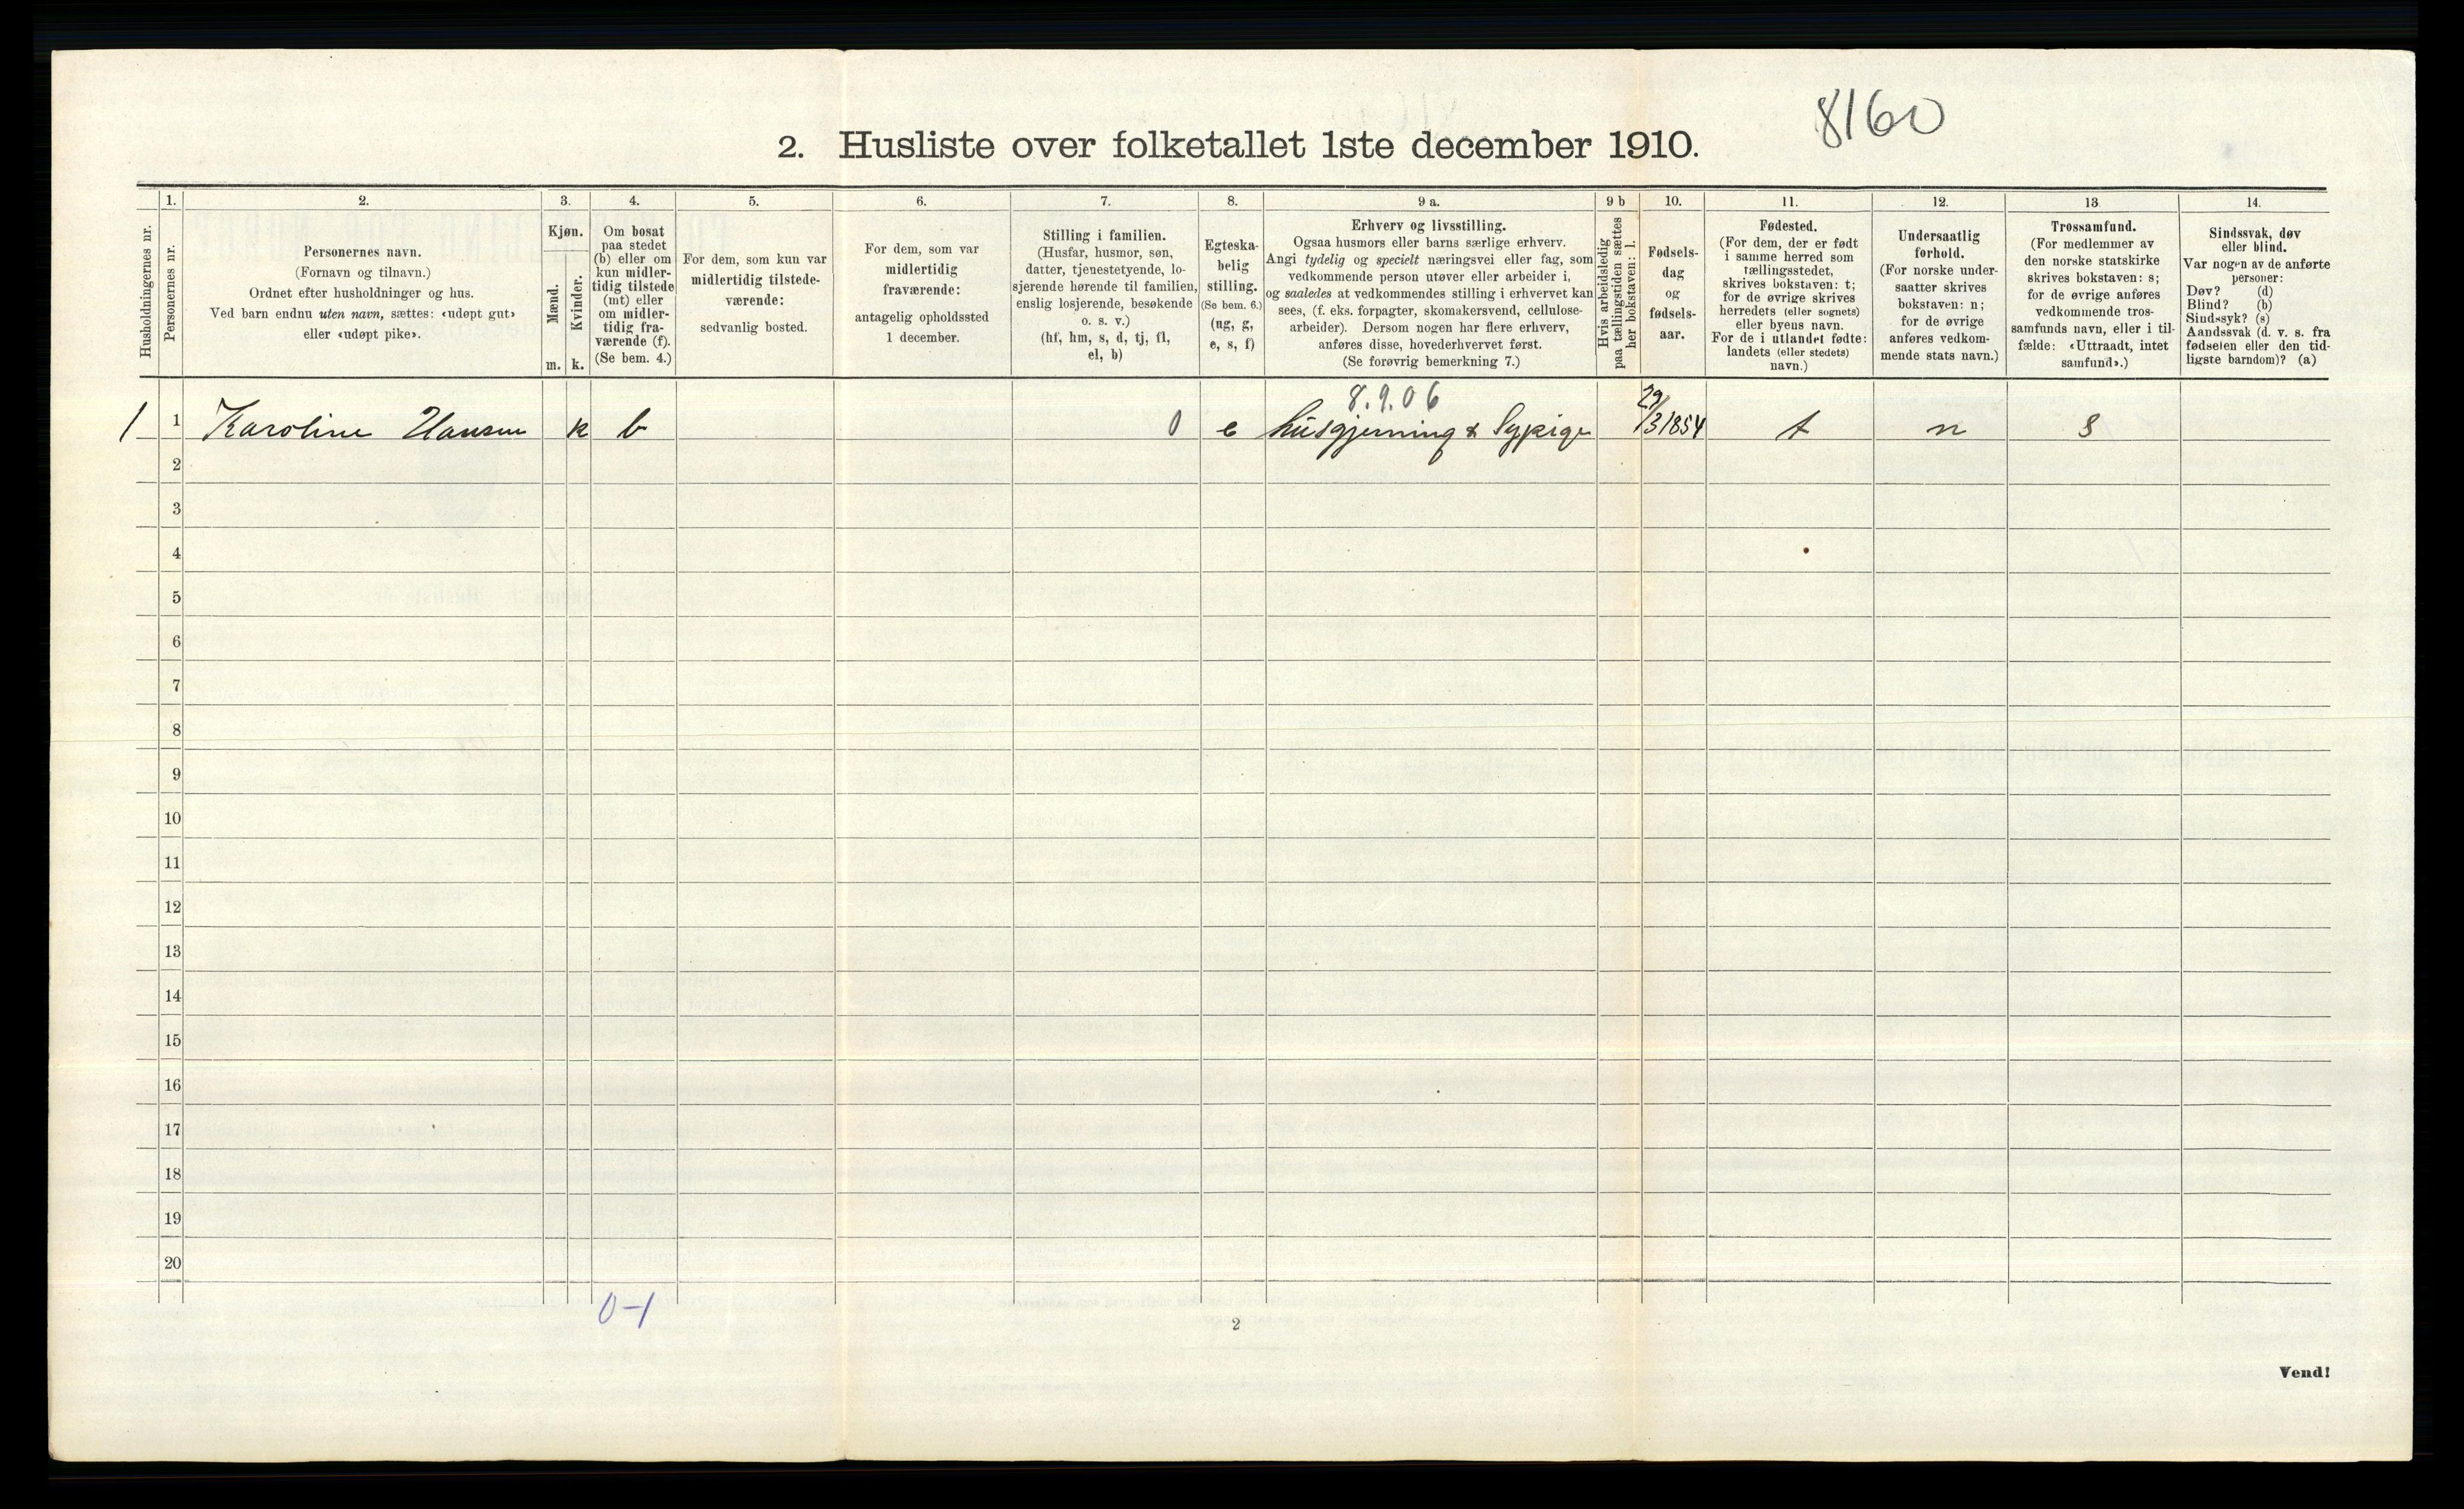 8160
2. Husliste over folketallet 1ste december 1910.
Husholdningernes nr.
1.
Personernes nr.
2.
Personernes navn.
(Fornavn og tilnavn.)
Ordnet efter husholdninger og hus.
Ved barn endnu uten navn, sættes: «udøpt gut»
eller «udøpt pike».
3.
Kjøn.
Mænd.
Kvinder.
m.
k.
4.
Om bosat
paa stedet
(b) eller om
kun midler-
tidig tilstede
(mt) eller
om midler-
tidig fra-
værende (f).
(Se bem. 4.)
5.
For dem, som kun var
midlertidig tilstede-
værende:
sedvanlig bosted.
6.
For dem, som var
midlertidig
fraværende:
antagelig opholdssted
1 december.
7.
Stilling i familien.
(Husfar, husmor, søn,
datter, tjenestetyende, lo-
sjerende hørende til familien,
enslig losjerende, besøkende
o. s. v.)
(hf, hm, s, d, tj, fl,
el, b)
8.
Egteska-
belig
stilling.
(Se bem. 6.)
(ug, g,
e, s, f)
9 a.
Erhverv og livsstilling.
Ogsaa husmors eller barns særlige erhverv.
Angi tydelig og specielt næringsvei eller fag, som
vedkommende person utøver eller arbeider i,
og saaledes at vedkommendes stilling i erhvervet kan
sees, (f. eks. forpagter, skomakersvend, cellulose-
arbeider). Dersom nogen har flere erhverv,
anføres disse, hovederhvervet først.
(Se forøvrig bemerkning 7.)
9 b
Hvis arbeidsledig
paa tællingstiden sættes
her bokstaven: l.
10.
Fødsels-
dag
og
fødsels-
aar.
11.
Fødested.
(For dem, der er født
i samme herred som
tællingsstedet,
skrives bokstaven: t;
for de øvrige skrives
herredets (eller sognets)
eller byens navn.
For de i utlandet fødte:
landets (eller stedets)
navn.)
12.
Undersaatlig
forhold.
(For norske under-
saatter skrives
bokstaven: n;
for de øvrige
anføres vedkom-
mende stats navn.)
13.
Trossamfund.
(For medlemmer av
den norske statskirke
skrives bokstaven: s;
for de øvrige anføres
vedkommende tros-
samfunds navn, eller i til-
fælde: «Uttraadt, intet
samfund».)
14.
Sindssvak, døv
eller blind.
Var nogen av de anførte
personer:
Døv? (d)
Blind? (b)
Sindssyk? (s)
Aandssvak (d. v. s. fra
fødselen eller den tid-
ligste barndom)? (a)
8.9.06
1 1 Karoline Hansen k b 0 e husgjerning & Sypige 29/3 1854 t n s
2
3
4
5
6
7
8
9
10
11
12
13
14
15
16
17
18
19
20
0-1
2
Vend!